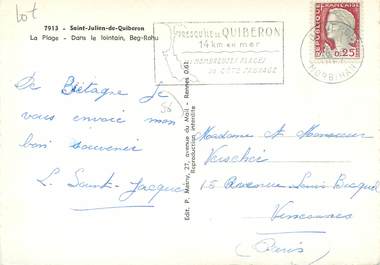 Lot
7913 - Saint-Julien-de-Quiberon
La Plage - Dans le lointain, Beg-Rohu
PRESQU'ILE DE QUIBERON
14km en mer
NOMBREUSES PLAGES
SA COTE SAUVAGE
REPUBLIQUE FRANÇAISE
0,25
MORBIHAN
De Bretagne je
vous envoie mon
bon souvenir
L. Saint-Jacques
56
Edit. P. Meiny, 27, avenue du Mail - Rennes 0.61
Reproduction interdite
Madame et Monsieur
15 Avenue Louis
Vincennes
(Paris)